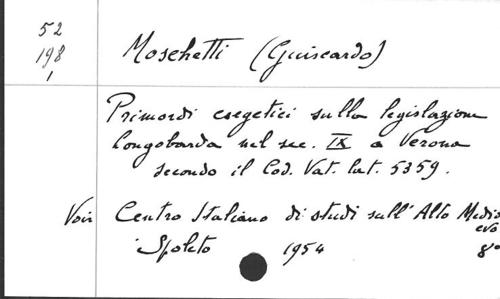 52
198
1
Moschetti (Guiscardo)
Primordi esegetici sulla legislazione
longobarda nel sec. IX a Verona
secondo il Cod. Vat. lat. 5359.
Voir Centro Italiano di studi sull'Alto Medio
evo
Spoleto 1954 8°